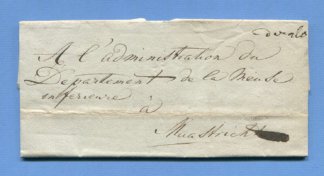 A l'administration du
Departement de la Meuse
inferieure
à
Maastricht